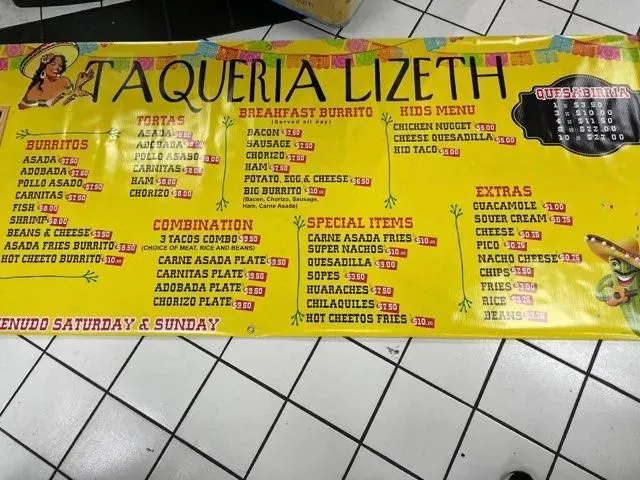 TAQUERIA LIZETH
BURRITOS
ASADA $7.50
ADOBADA $7.50
POLLO ASADO $7.50
CARNITAS $7.50
FISH $8.00
SHRIMP $8.00
BEANS & CHEESE $3.50
ASADA FRIES BURRITO $8.50
HOT CHEETO BURRITO
MENUDO SATURDAY & SUNDAY
TORTAS
ASADA
ADOBADA
POLLO ASASO
CARNITAS $8.00
HAM $8.00
CHORIZO $8.00
COMBINATION
3 TACOS COMBO $9.50
(CHOICE OF MEAT, RICE AND BEANS)
CARNE ASADA PLATE $9.50
CARNITAS PLATE $9.50
ADOBADA PLATE $9.50
CHORIZO PLATE $9.50
BREAKFAST BURRITO
(Served all day)
BACON $7.50
SAUSAGE $7.50
CHORIZO $7.50
HAM $7.50
POTATO, EGG, & CHEESE $6.50
BIG BURRITO
(Bacon, Chorizo, Sausage,
Ham, Carne Asada)
SPECIAL ITEMS
CARNE ASADA FRIES
SUPER NACHOS
QUESADILLA $9.00
SOPES $3.50
HUARACHES $7.50
CHILAQUILES $7.50
HOT CHEETOS FRIES
KIDS MENU
CHICKEN NUGGET $5.00
CHEESE QUESADILLA $5.00
KID TACO $5.00
EXTRAS
GUACAMOLE $1.00
SOUER CREAM $0.75
CHEESE $0.75
PICO $0.75
NACHO CHEESE $0.75
CHIPS
FRIES
RICE
BEANS
QUESABIRRIA
1 x $3.50
3 x $10.00
4 x $11.50
8 x $22.00
10 x $27.00